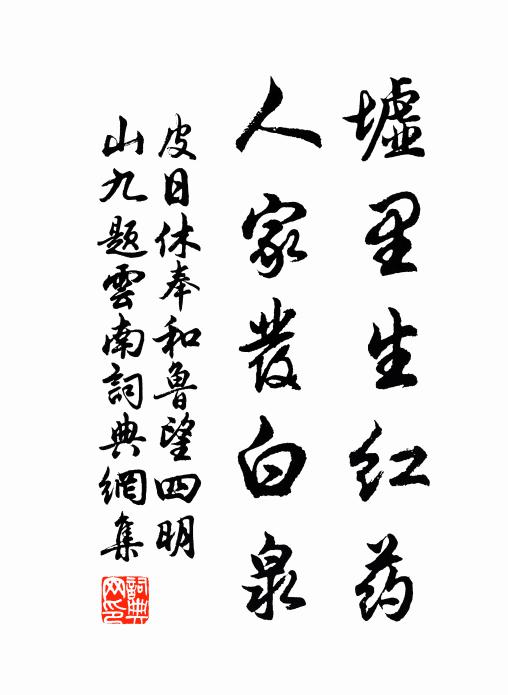 墟里生红药
人家發白泉
皮日休奉和鲁望四明
山九题雲南詞典網集
詞典